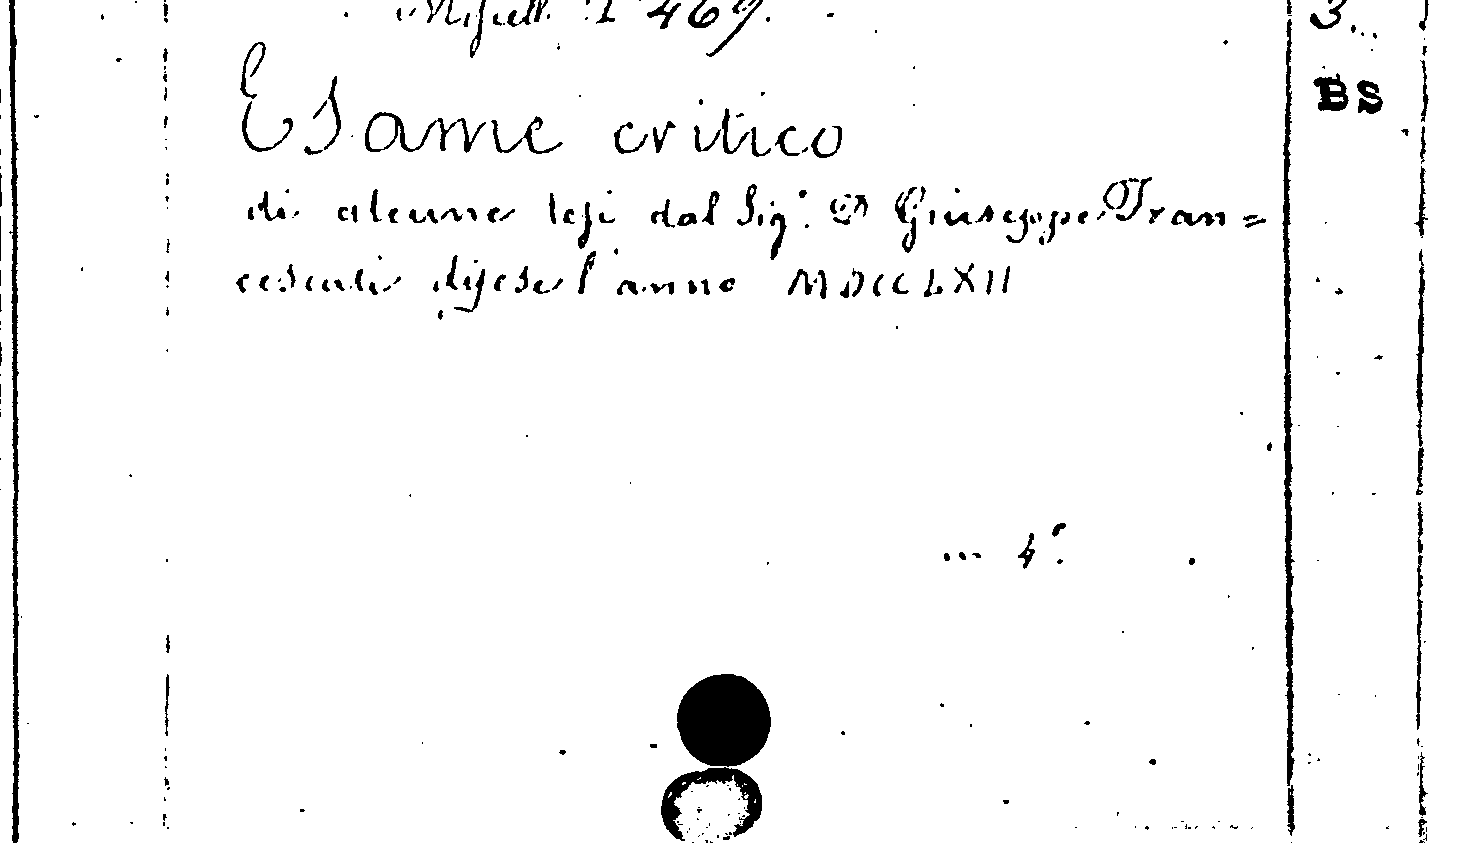 Miscell. I 469. 3...
BS
Esame critico
di alcune tesi dal Sig.r D Giuseppe Fran=
cescati difese l'anno MDCCLXII
... 4°.